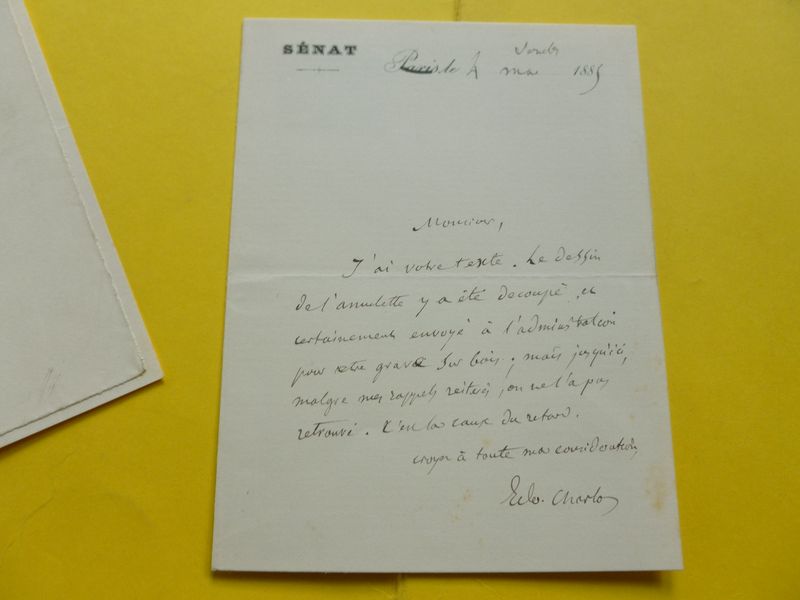 SÉNAT
Paris, le 4 mai 1885
Monsieur,
J'ai votre texte. Le dessin
de l'amulette y a été decoupé et
certainement envoyé à l'administration
pour être gravé sur bois ; mais jusqu'ici,
malgre mes rappels réitérés, on ne l'a pas
retrouvé. C'est la cause du retard.
croyez à toute ma consideration
Ed. Charton